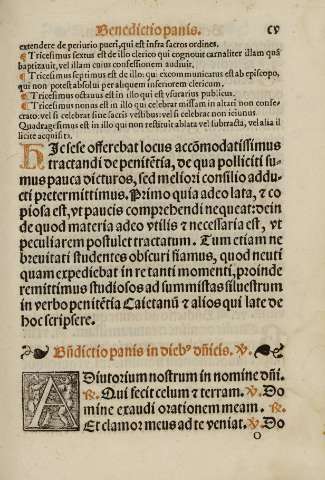 Benedictio panis. CV
extendere de periurio pueri, qui est infra sacros ordines.
¶ Tricesimus sextus est de illo clerico qui cognouit carnaliter illam quã
baptizauit, vel illam cuius confessionem audiuit.
¶ Tricesimus septimus est de illo: qui excommunicatus est ab episcopo,
qui non potest absolui per aliquem inferiorem clericum.
¶ Tricesimus octauus est in illo qui est vsurarius publicus.
¶ Tricesimus nonus est in illo qui celebrat missam in altari non conse-
crato: vel si celebrat sine sacris vestibus: vel si celebrat non ieiunus
Quadragesimus est in illo qui non restituit ablata vel subtracta, vel alia il
licite acquisita.
HIc sese offerebat locus accõmodatissimus
tractandi de penitẽtia, de qua polliciti su-
mus pauca dicturos, sed meliori consilio addu-
cti pretermittimus. Primo quia adeo lata, & co
piosa est, vt paucis comprehendi nequeat: dein
de quod materia adeo vtilis & necessaria est, vt
peculiarem postulet tractatum. Tum etiam ne
breuitati studentes obscuri fiamus, quod neuti
quam expediebat in re tanti momenti, proinde
remittimus studiosos ad summistas siluestrum
in verbo penitẽtia Caietanũ & alios qui late de
hoc scripsere.
Bñdictio panis in dieb⁹ dñicis. ℣.
ADiutorium nostrum in nomine dñi.
℟. Qui fecit celum & terram. ℣. Do
mine exaudi orationem meam. ℟.
Et clamor meus ad te veniat. ℣. Do
O